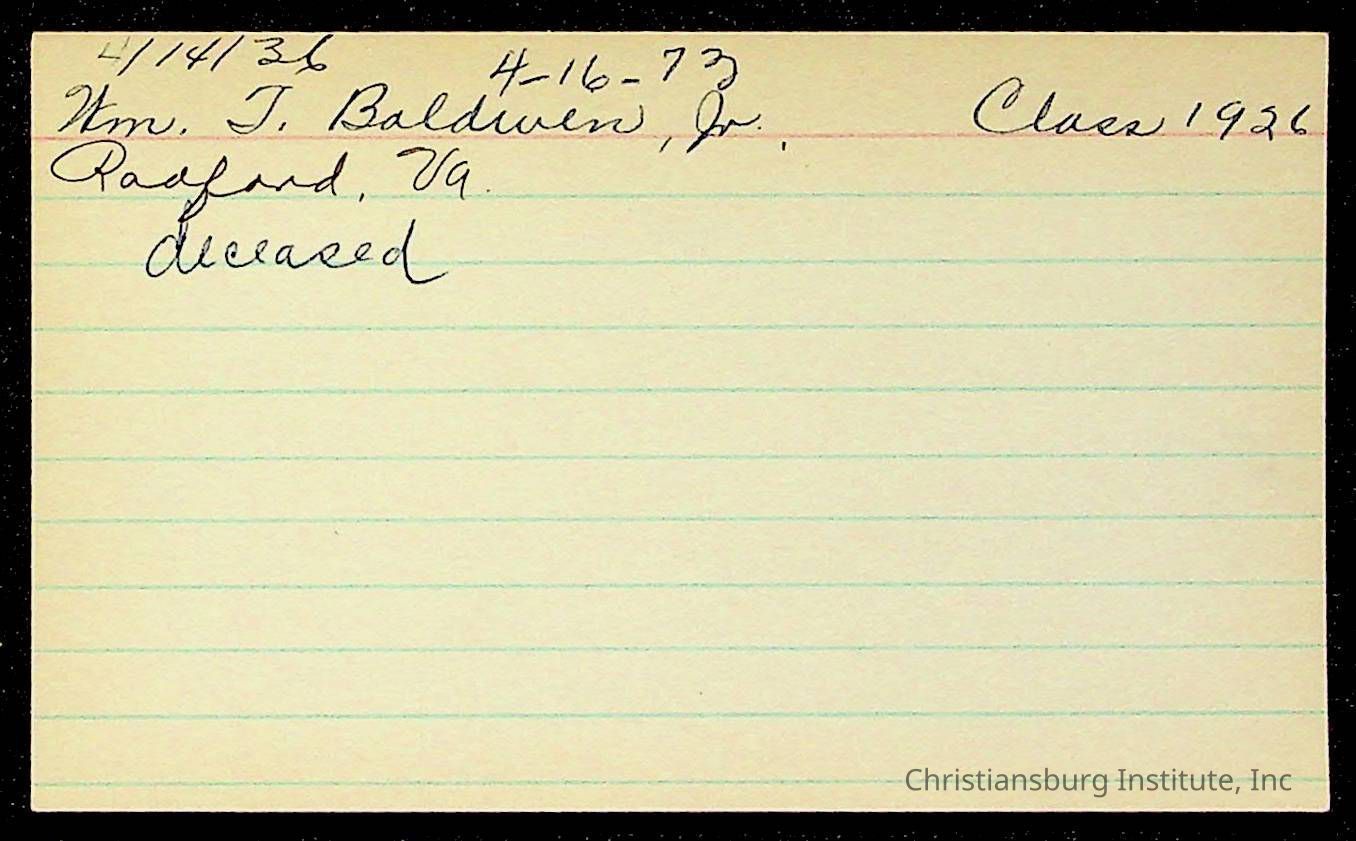 4/14/36 4-16-73
Wm. T. Baldwin, Jr. Class 1926
Radford, Va.
deceased
Christiansburg Institute, Inc